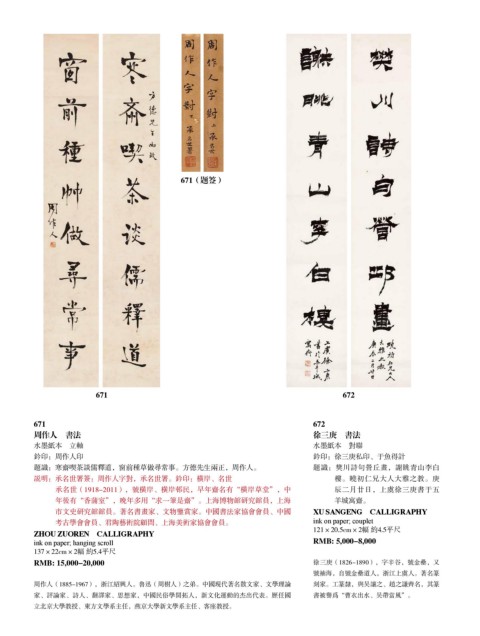 寒齋喫茶談儒釋道
方德先生兩正
窗前種艸做尋常事
周作人
周作人字對
周作人字對
671（題簽）
樊川詩句營邱畫
謝朓青山李白樓
671
672
671
周作人　書法
水墨紙本　立軸
鈐印：周作人印
題識：寒齋喫茶談儒釋道，窗前種草做尋常事。方德先生兩正，周作人。
說明：承名世題署簽：周作人字對，承名世署。鈐印：橫岸、名世
承名世（1918–2011），號橫岸、橫岸邨民，早年齋名有“橫岸草堂”，中
年後有“香薩室”，晚年多用“求一筆是齋”。上海博物館研究館員，上海
市文史研究館館員。著名書畫家、文物鑒賞家。中國書法家協會會員、中國
考古學會會員、君匋藝術院顧問、上海美術家協會會員。
ZHOU ZUOREN　CALLIGRAPHY
ink on paper; hanging scroll
137 × 22cm × 2幅 約5.4平尺
RMB: 15,000–20,000
周作人（1885–1967），浙江紹興人。魯迅（周樹人）之弟。中國現代著名散文家、文學理論
家、評論家、詩人、翻譯家、思想家，中國民俗學開拓人，新文化運動的杰出代表。歷任國
立北京大學教授、東方文學系主任，燕京大學新文學系主任、客座教授。
672
徐三庚　書法
水墨紙本　對聯
鈐印：徐三庚私印、于魚得計
題識：樊川詩句營丘畫，謝朓青山李白
樓。曉初仁兄大人大雅之教。庚
辰二月廿日，上虞徐三庚書于五
羊城寓齋。
XU SANGENG　CALLIGRAPHY
ink on paper; couplet
121 × 20.5cm × 2幅 約4.5平尺
RMB: 5,000–8,000
徐三庚（1826–1890），字辛谷，號金罍，又
號袖海，自號金罍道人，浙江上虞人。著名篆
刻家。工篆隸，與吳讓之、趙之謙齊名，其篆
書被譽爲“曹衣出水、吳帶當風”。